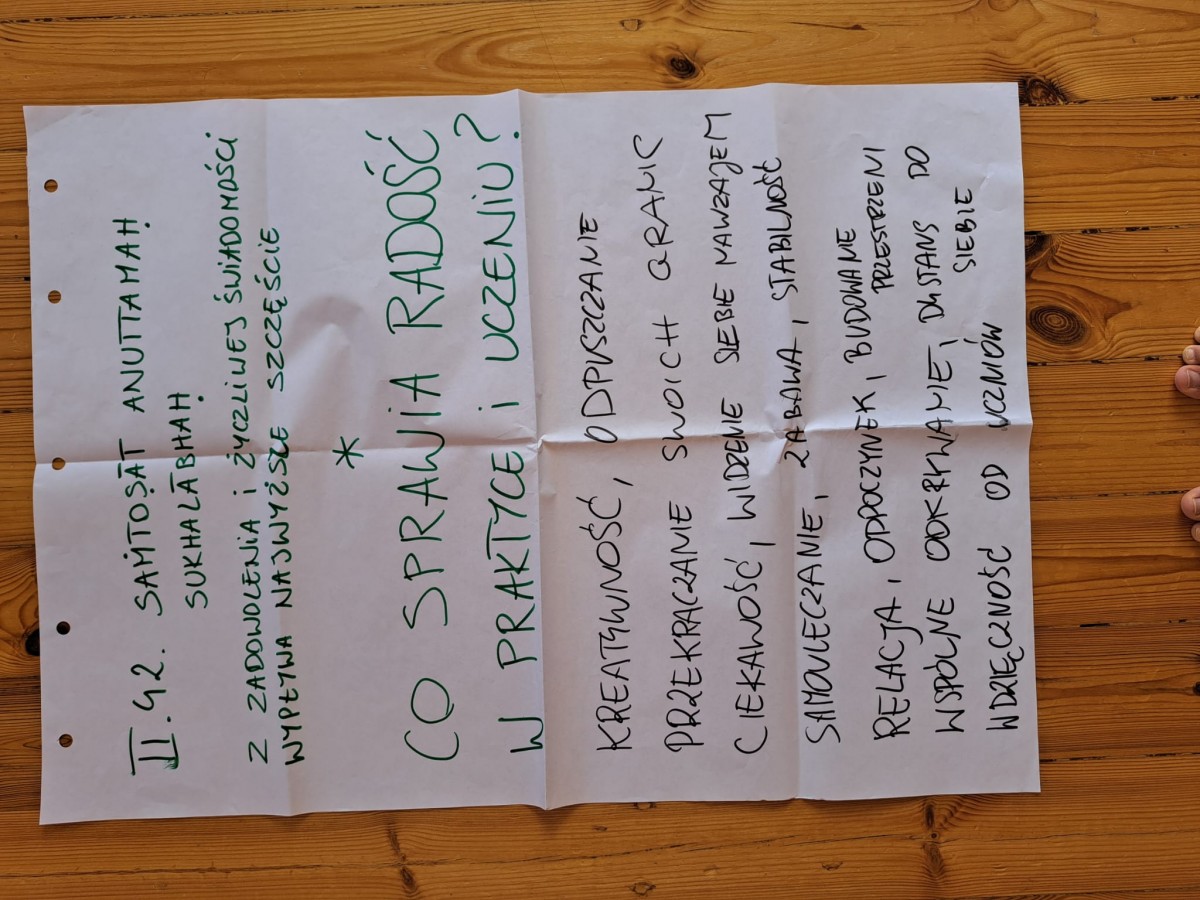 II.42. SAMTOṢĀT ANUTTAMAḤ
SUKHALĀBHAḤ
Z ZADOWOLENIA I ŻYCZLIWEJ ŚWIADOMOŚCI
WYPŁYWA NAJWYŻSZE SZCZĘŚCIE
*
CO SPRAWIA RADOŚĆ
W PRAKTYCE I UCZENIU?
KREATYWNOŚĆ, ODPUSZCZANIE
PRZEKRACZANIE SWOICH GRANIC
CIEKAWOŚĆ, WIDZENIE SIEBIE NAWZAJEM
SAMOULECZANIE, ZABAWA, STABILNOŚĆ
RELACJA, ODPOCZYNEK, BUDOWANIE
PRZESTRZENI
WSPÓLNE ODKRYWANIE, DYSTANS DO
SIEBIE
WDZIĘCZNOŚĆ OD UCZNIÓW